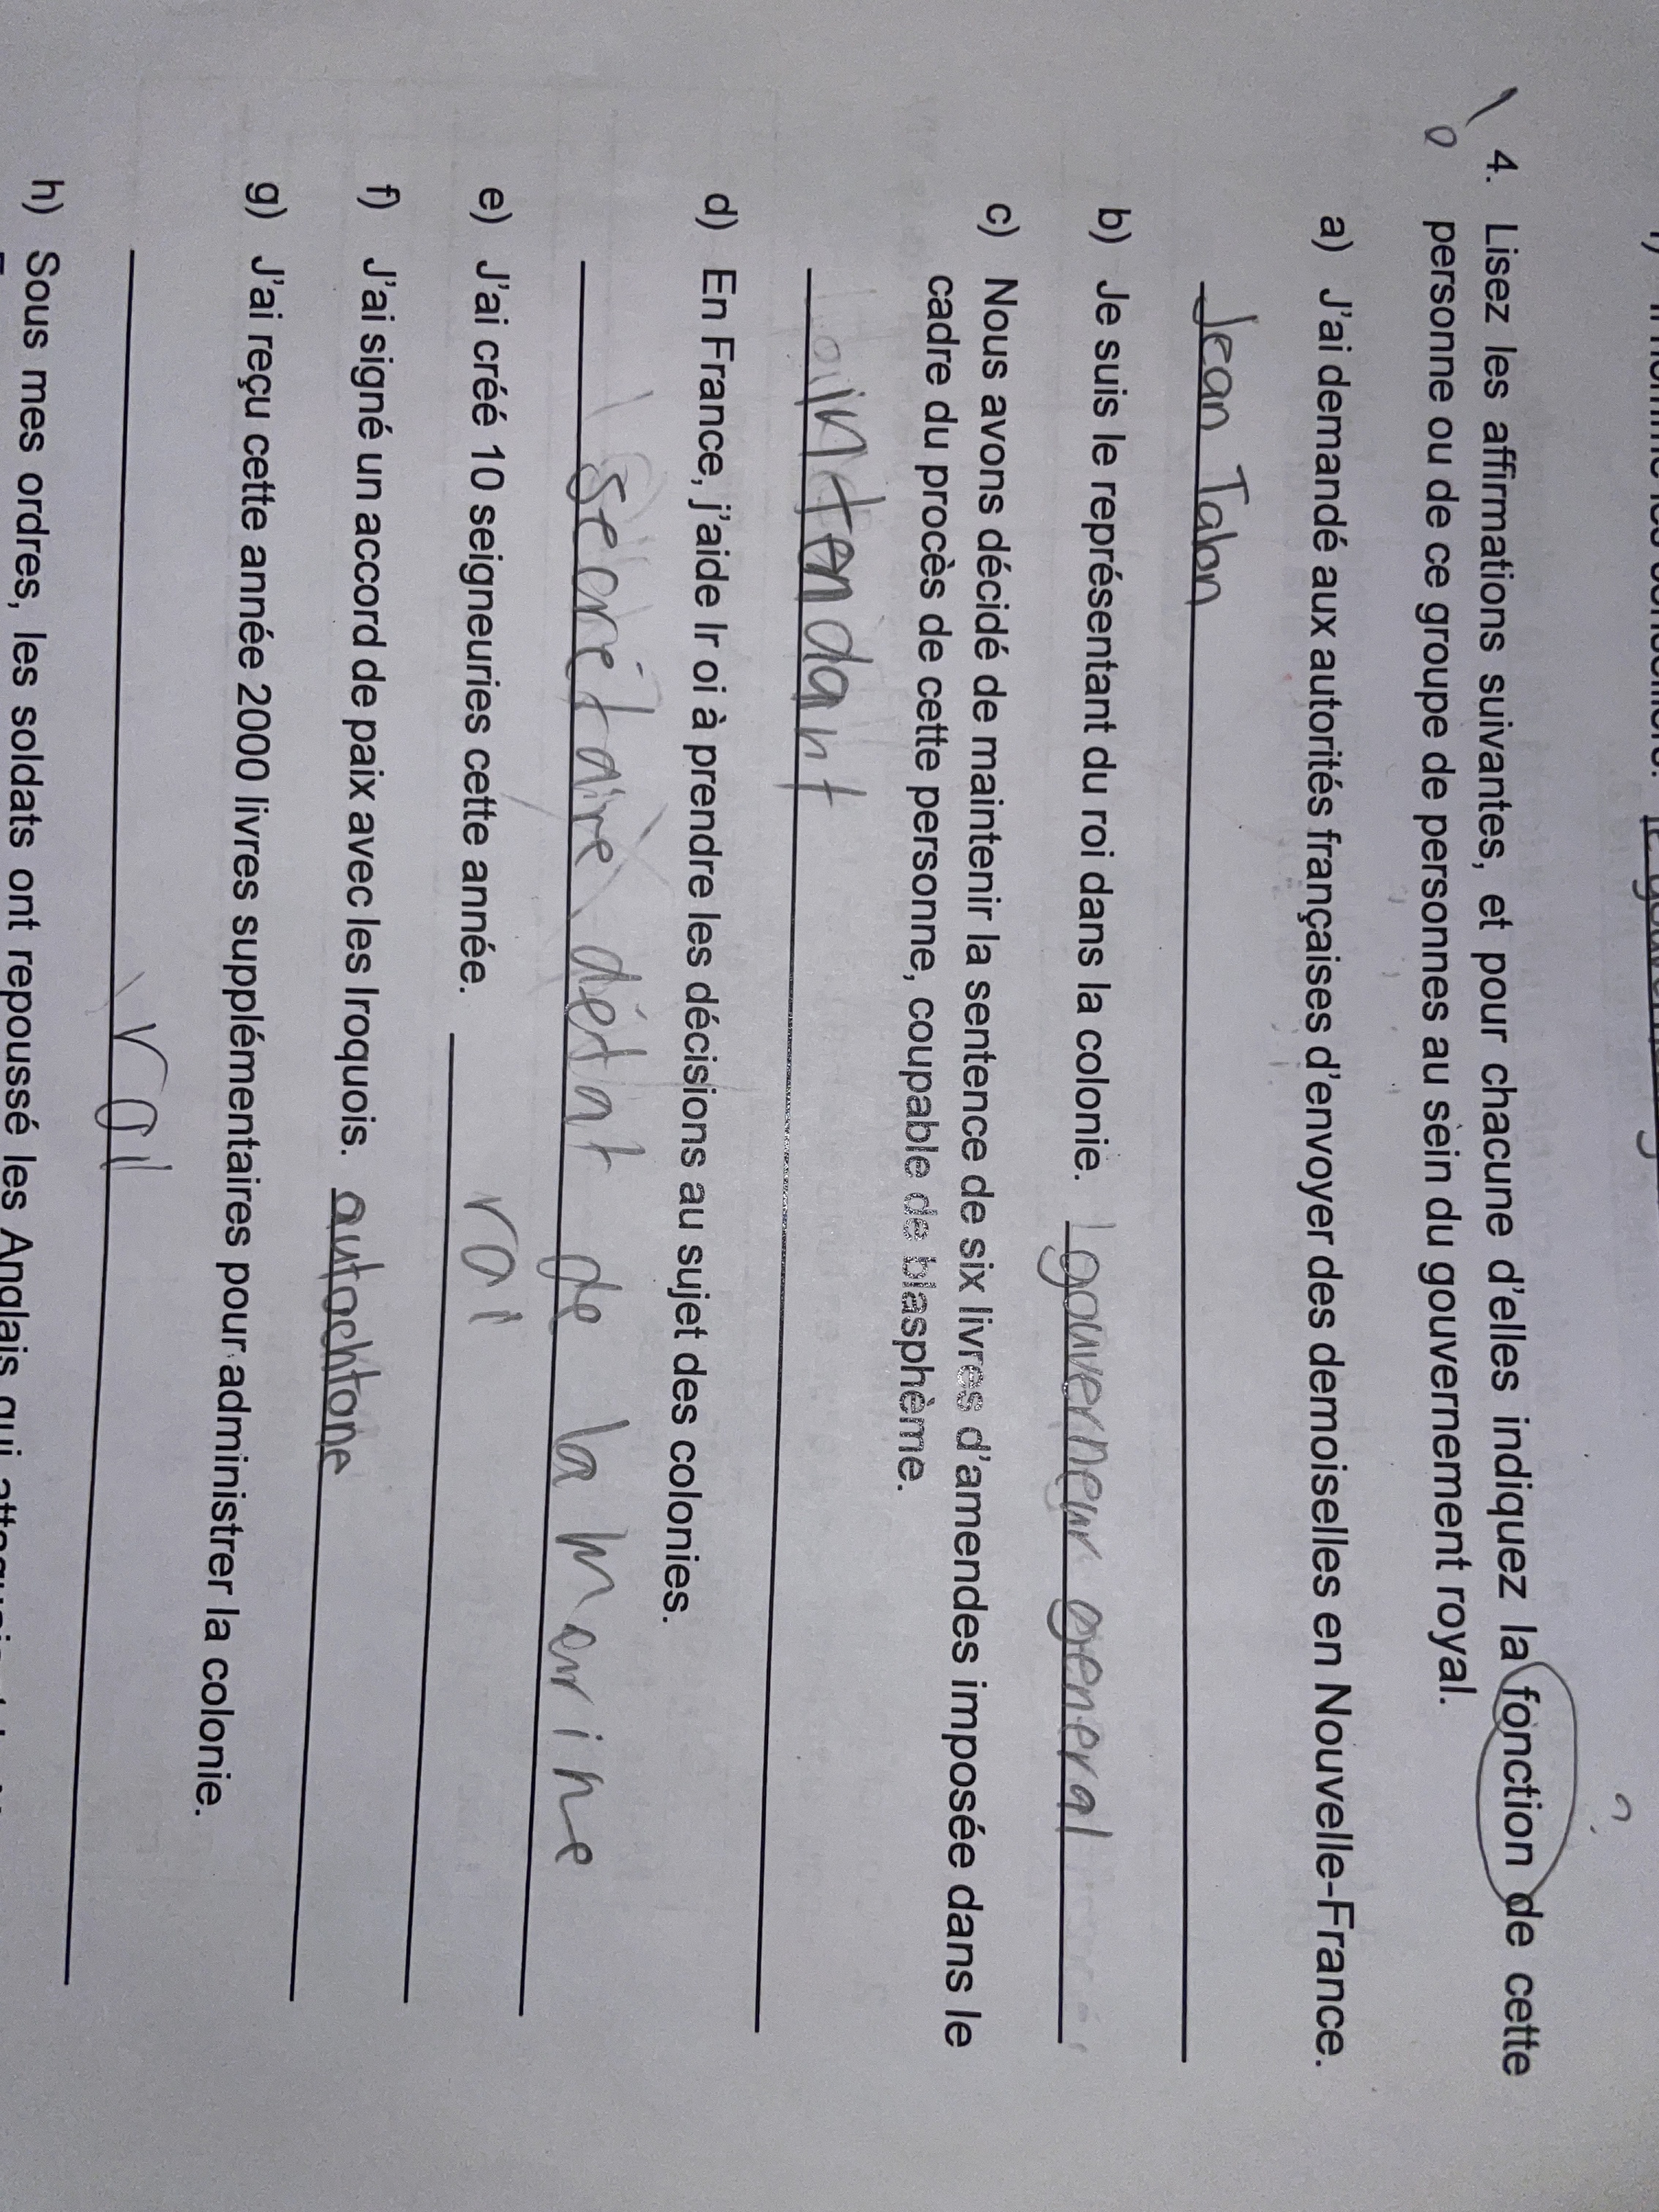 4. Lisez les affirmations suivantes, et pour chacune d'elles indiquez la fonction de cette
personne ou de ce groupe de personnes au sein du gouvernement royal.
a) J'ai demandé aux autorités françaises d'envoyer des demoiselles en Nouvelle-France.
Jean Talon
b) Je suis le représentant du roi dans la colonie. gouverneur general
c) Nous avons décidé de maintenir la sentence de six livres d'amendes imposée dans le
cadre du procès de cette personne, coupable de blasphème.
intendant
d) En France, j'aide lr oi à prendre les décisions au sujet des colonies.
secrétaire détat de la marine
e) J'ai créé 10 seigneuries cette année. roi
f) J'ai signé un accord de paix avec les Iroquois. autochtone
g) J'ai reçu cette année 2000 livres supplémentaires pour administrer la colonie.
roi
h) Sous mes ordres, les soldats ont repoussé les Anglais qui